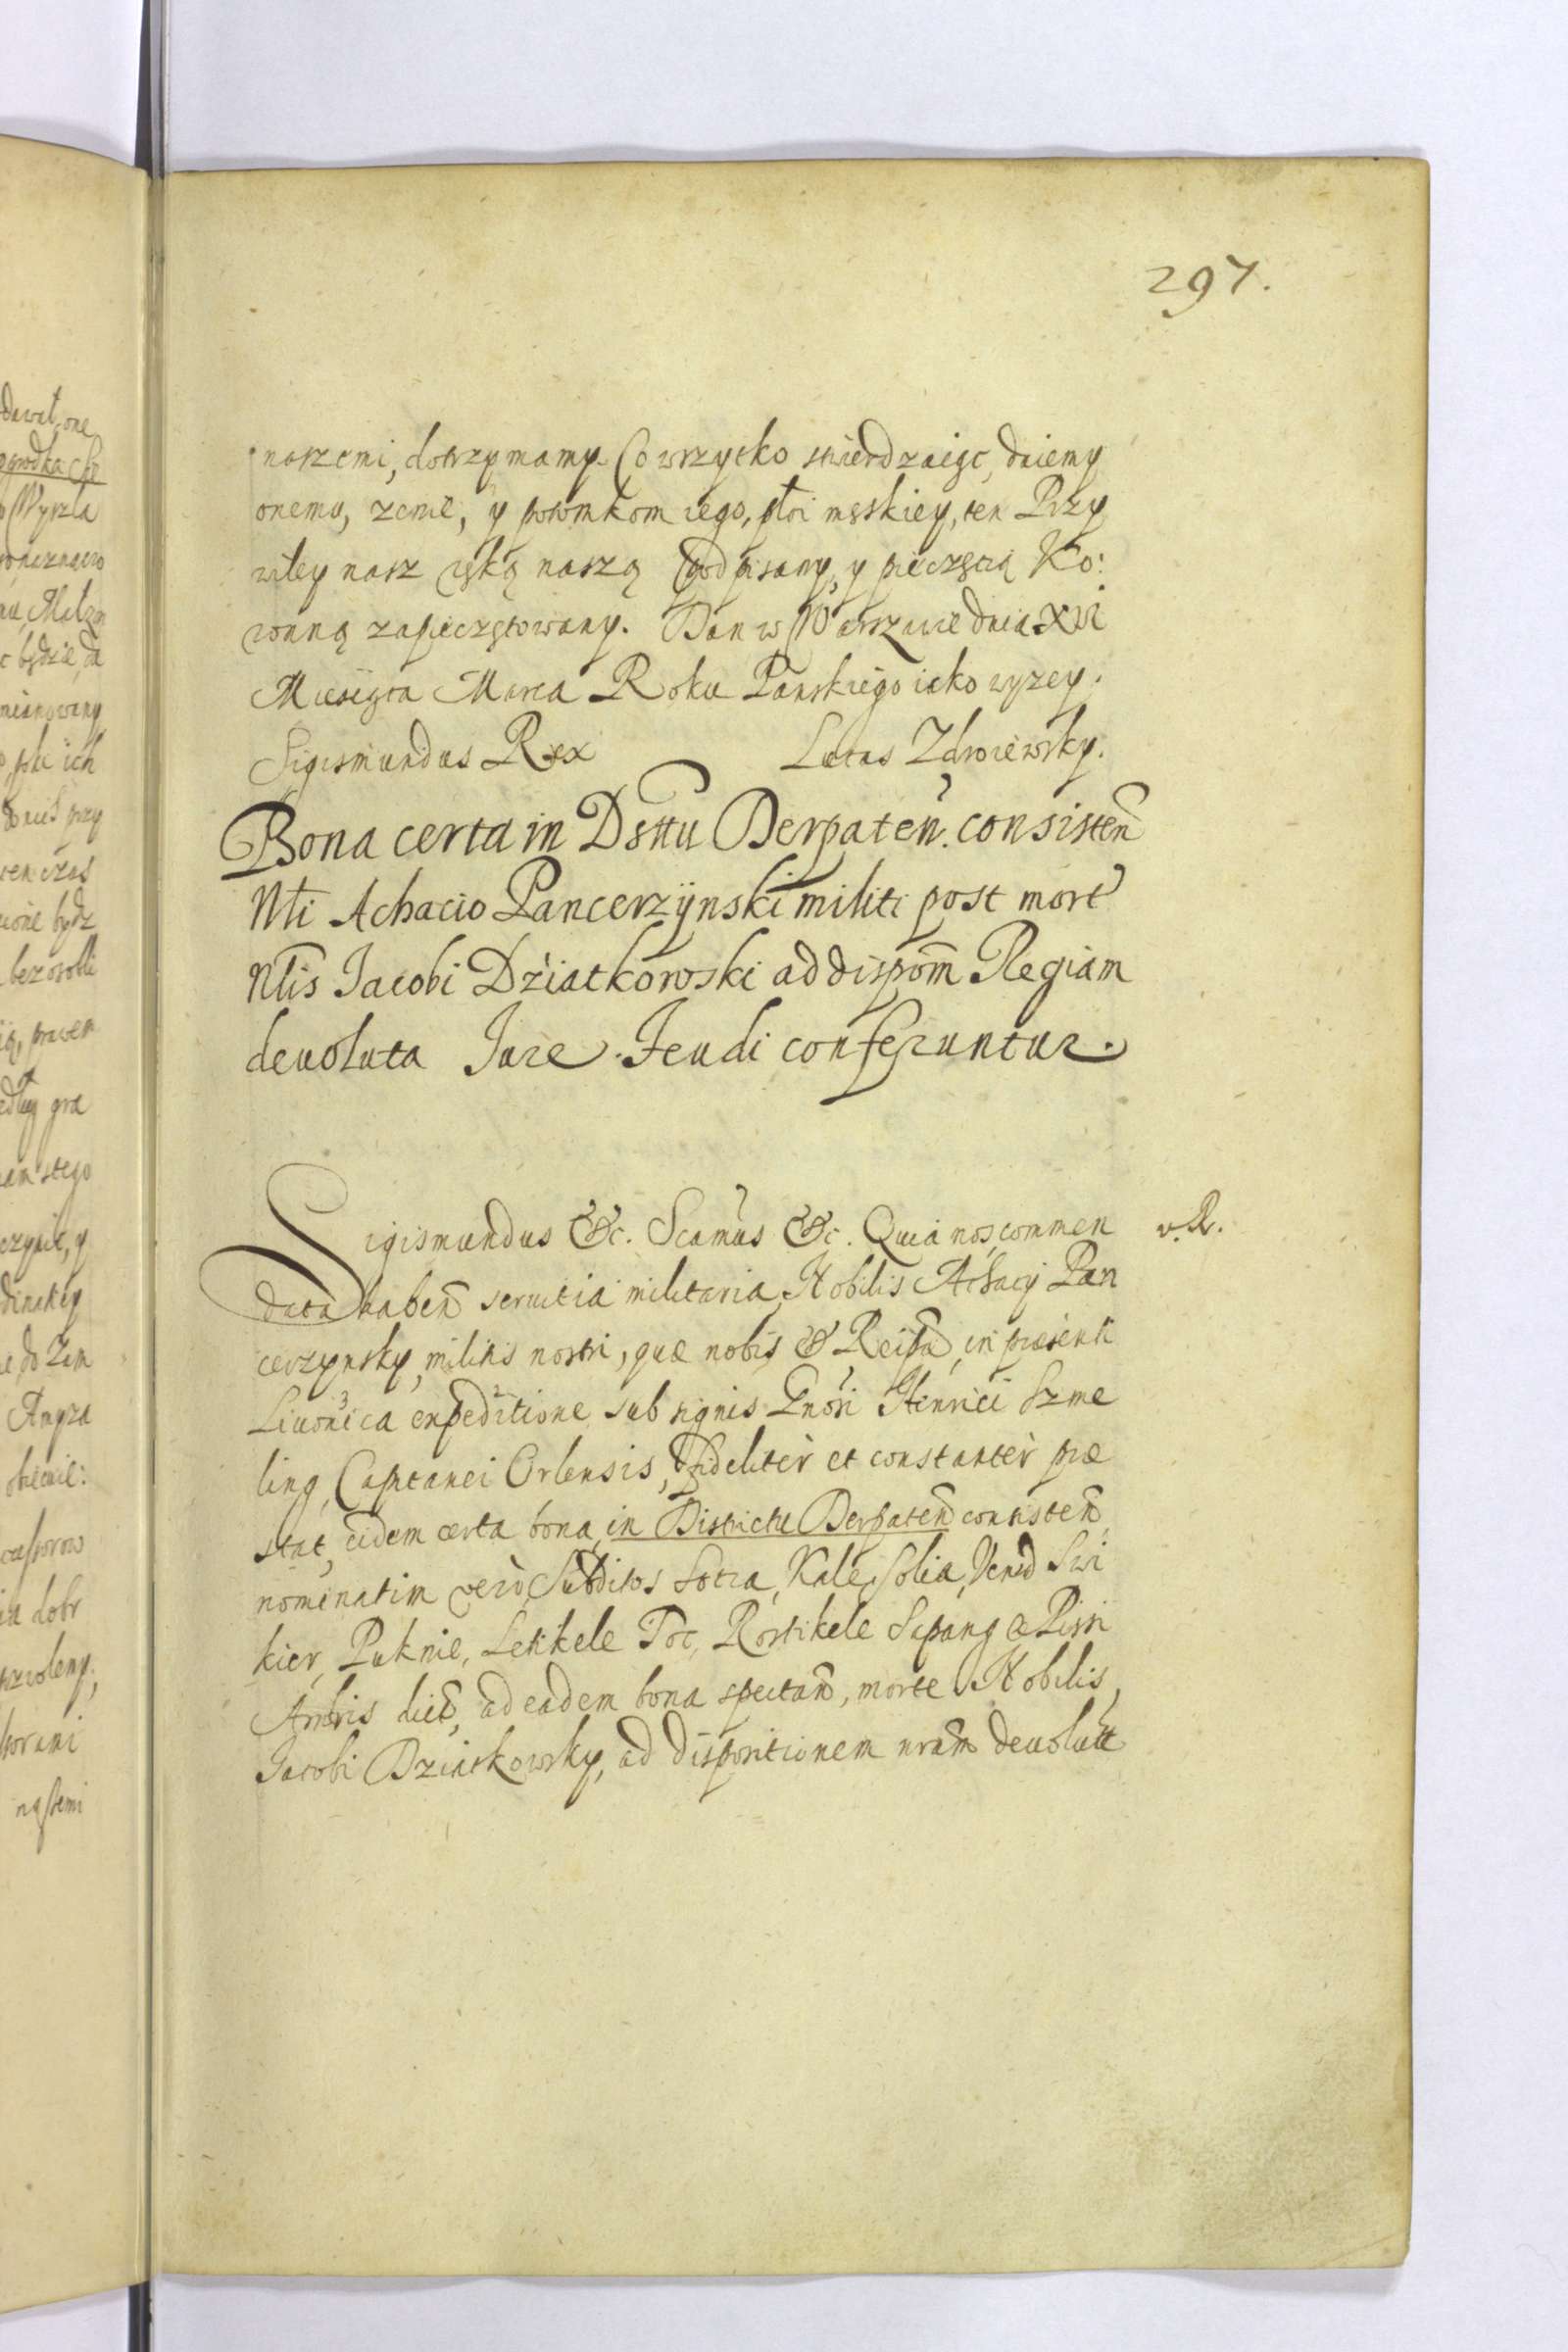 297.
naszemi, dotrzymamy. Co wszytko stwierdzaiąc, daiemy
onemu, zenie, y potomkom iego, płci męskiey, ten Przy
wiley nasz ręką naszą podpisany, y pieczęcią Ko:
ronną zapieczętowany. Dan w Warszawie dnia XVI
Miesiąca Marca Roku Panskiego iako wyzey.
Sigismundus Rex Lucas Zdroiewsky.
Bona certa in Dsttu Derpateñ. consisteñ
Nli Achacio Pancerzÿnski militi post mort
Nlis Jacobi Dziatkowski ad dispom̃ Regiam
deuoluta Jure Feudi conferuntur.
Sigismundus &c. Scamus &c. Quia nos, commen
data habeñ seruitia militaria, Nobilis Achacÿ Pan
cerzynsky, militis nostri, quæ nobis & Reipũ, in præsenti
Liuonica expeditione, sub signis Gnosi Henrici Szme
ling, Captanei Orlensis, fideliter et constanter præ
stat, eidem certa bona, in Districtu Derpateñ consisteñ
nominatim vero, Subditos Sotra, Kale, Solia, Vend Swi
kier, Puknie, Lekkele Toc, Rostikele Sapang & Pissi
dict, ad eadem bona spectañ, morte Nobilis,
Jacobi Dziatkowsky, ad dispositionem nram̃ deuolutt
v. R.